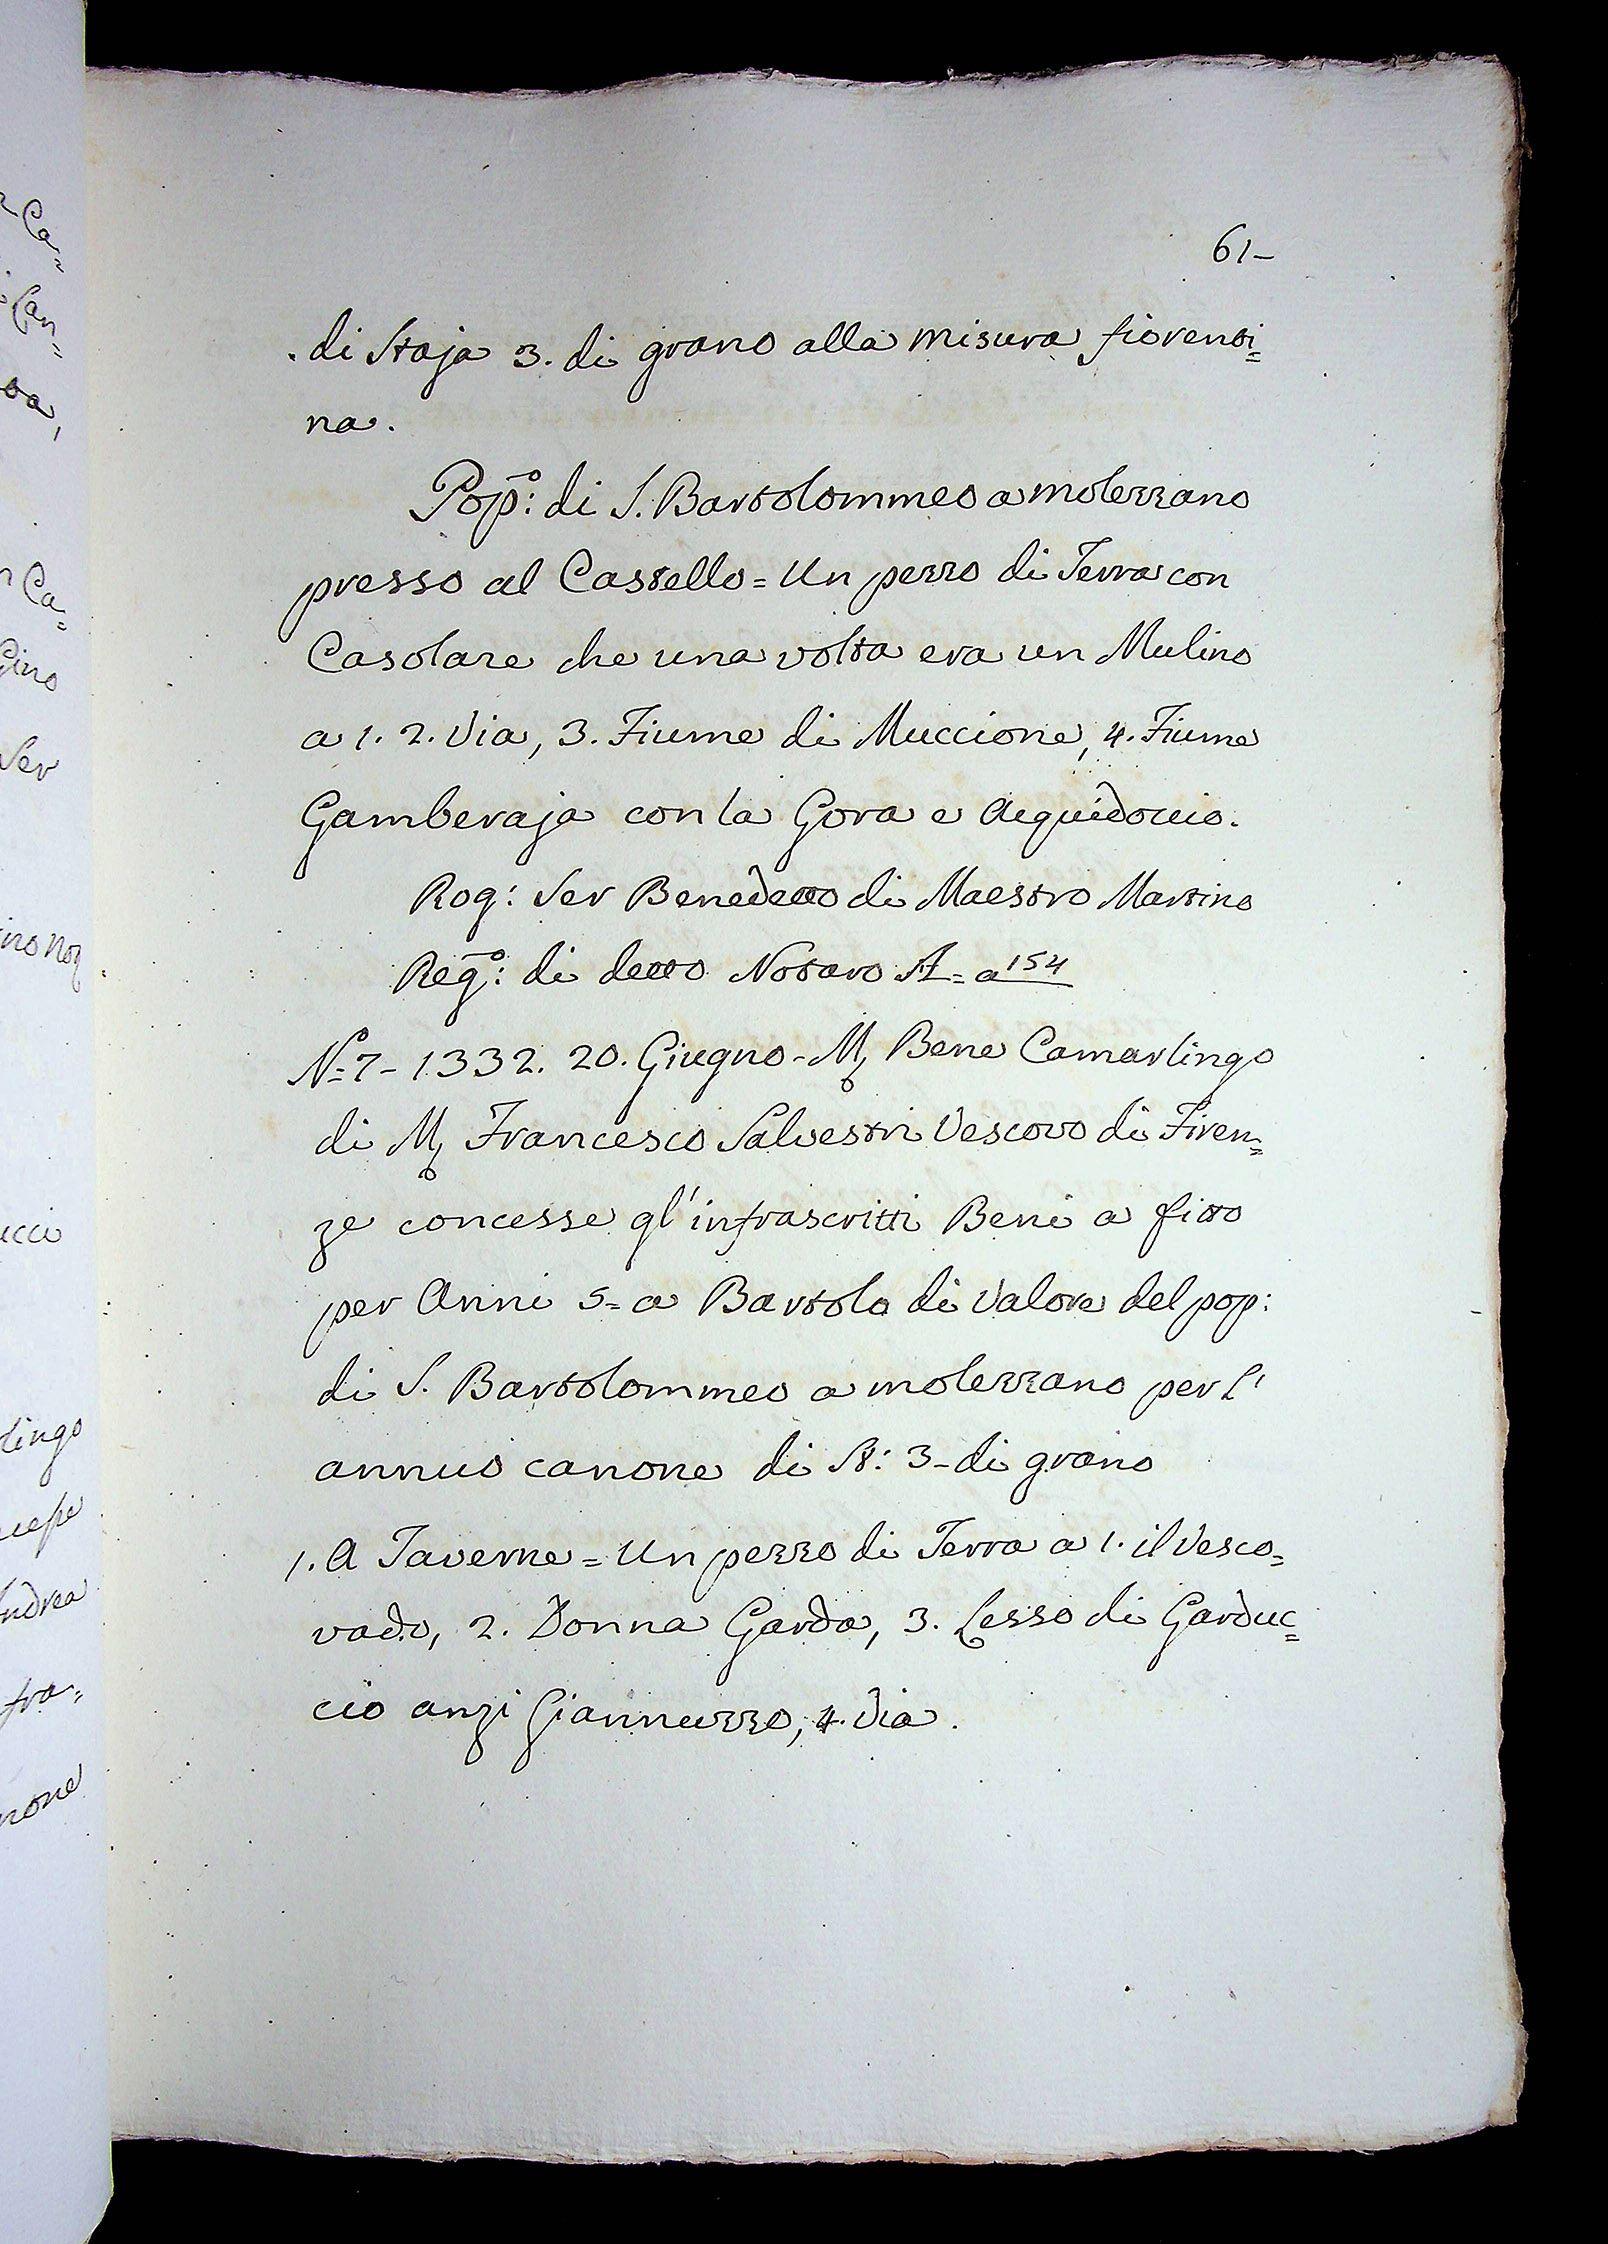 61-
di Staja 3. di grano alla misura fiorenti=
na.
Popº: di S. Bartolommeo a molezzano
presso al Castello = Un pezzo di Terra con
Casolare che una volta era un Mulino
a 1. 2. Via, 3. Fiume di Muccione, 4. Fiume
Gamberaja con la Gora e Acquidoccio.
Rog: Ser Benedetto di Maestro Martino
Regº: di detto Notaro A = a 154
Nº 7 - 1332. 20. Giugno - M, Bene Camarlingo
di M, Francesco Salvestri Vescovo di Firen=
ze concesse gl'infrascritti Beni a fitto
per Anni 5 = a Bartolo di Valore del pop:
di S. Bartolommeo a molezzano per l'
annuo canone di St: 3 - di grano
1. A Taverne = Un pezzo di Terra a 1. il Vesco=
vado, 2. Donna Garda, 3. Lesso di Garduc=
cio anzi Giannuzzo, 4. Via.
Ca=
Ca=
Gino
Ser